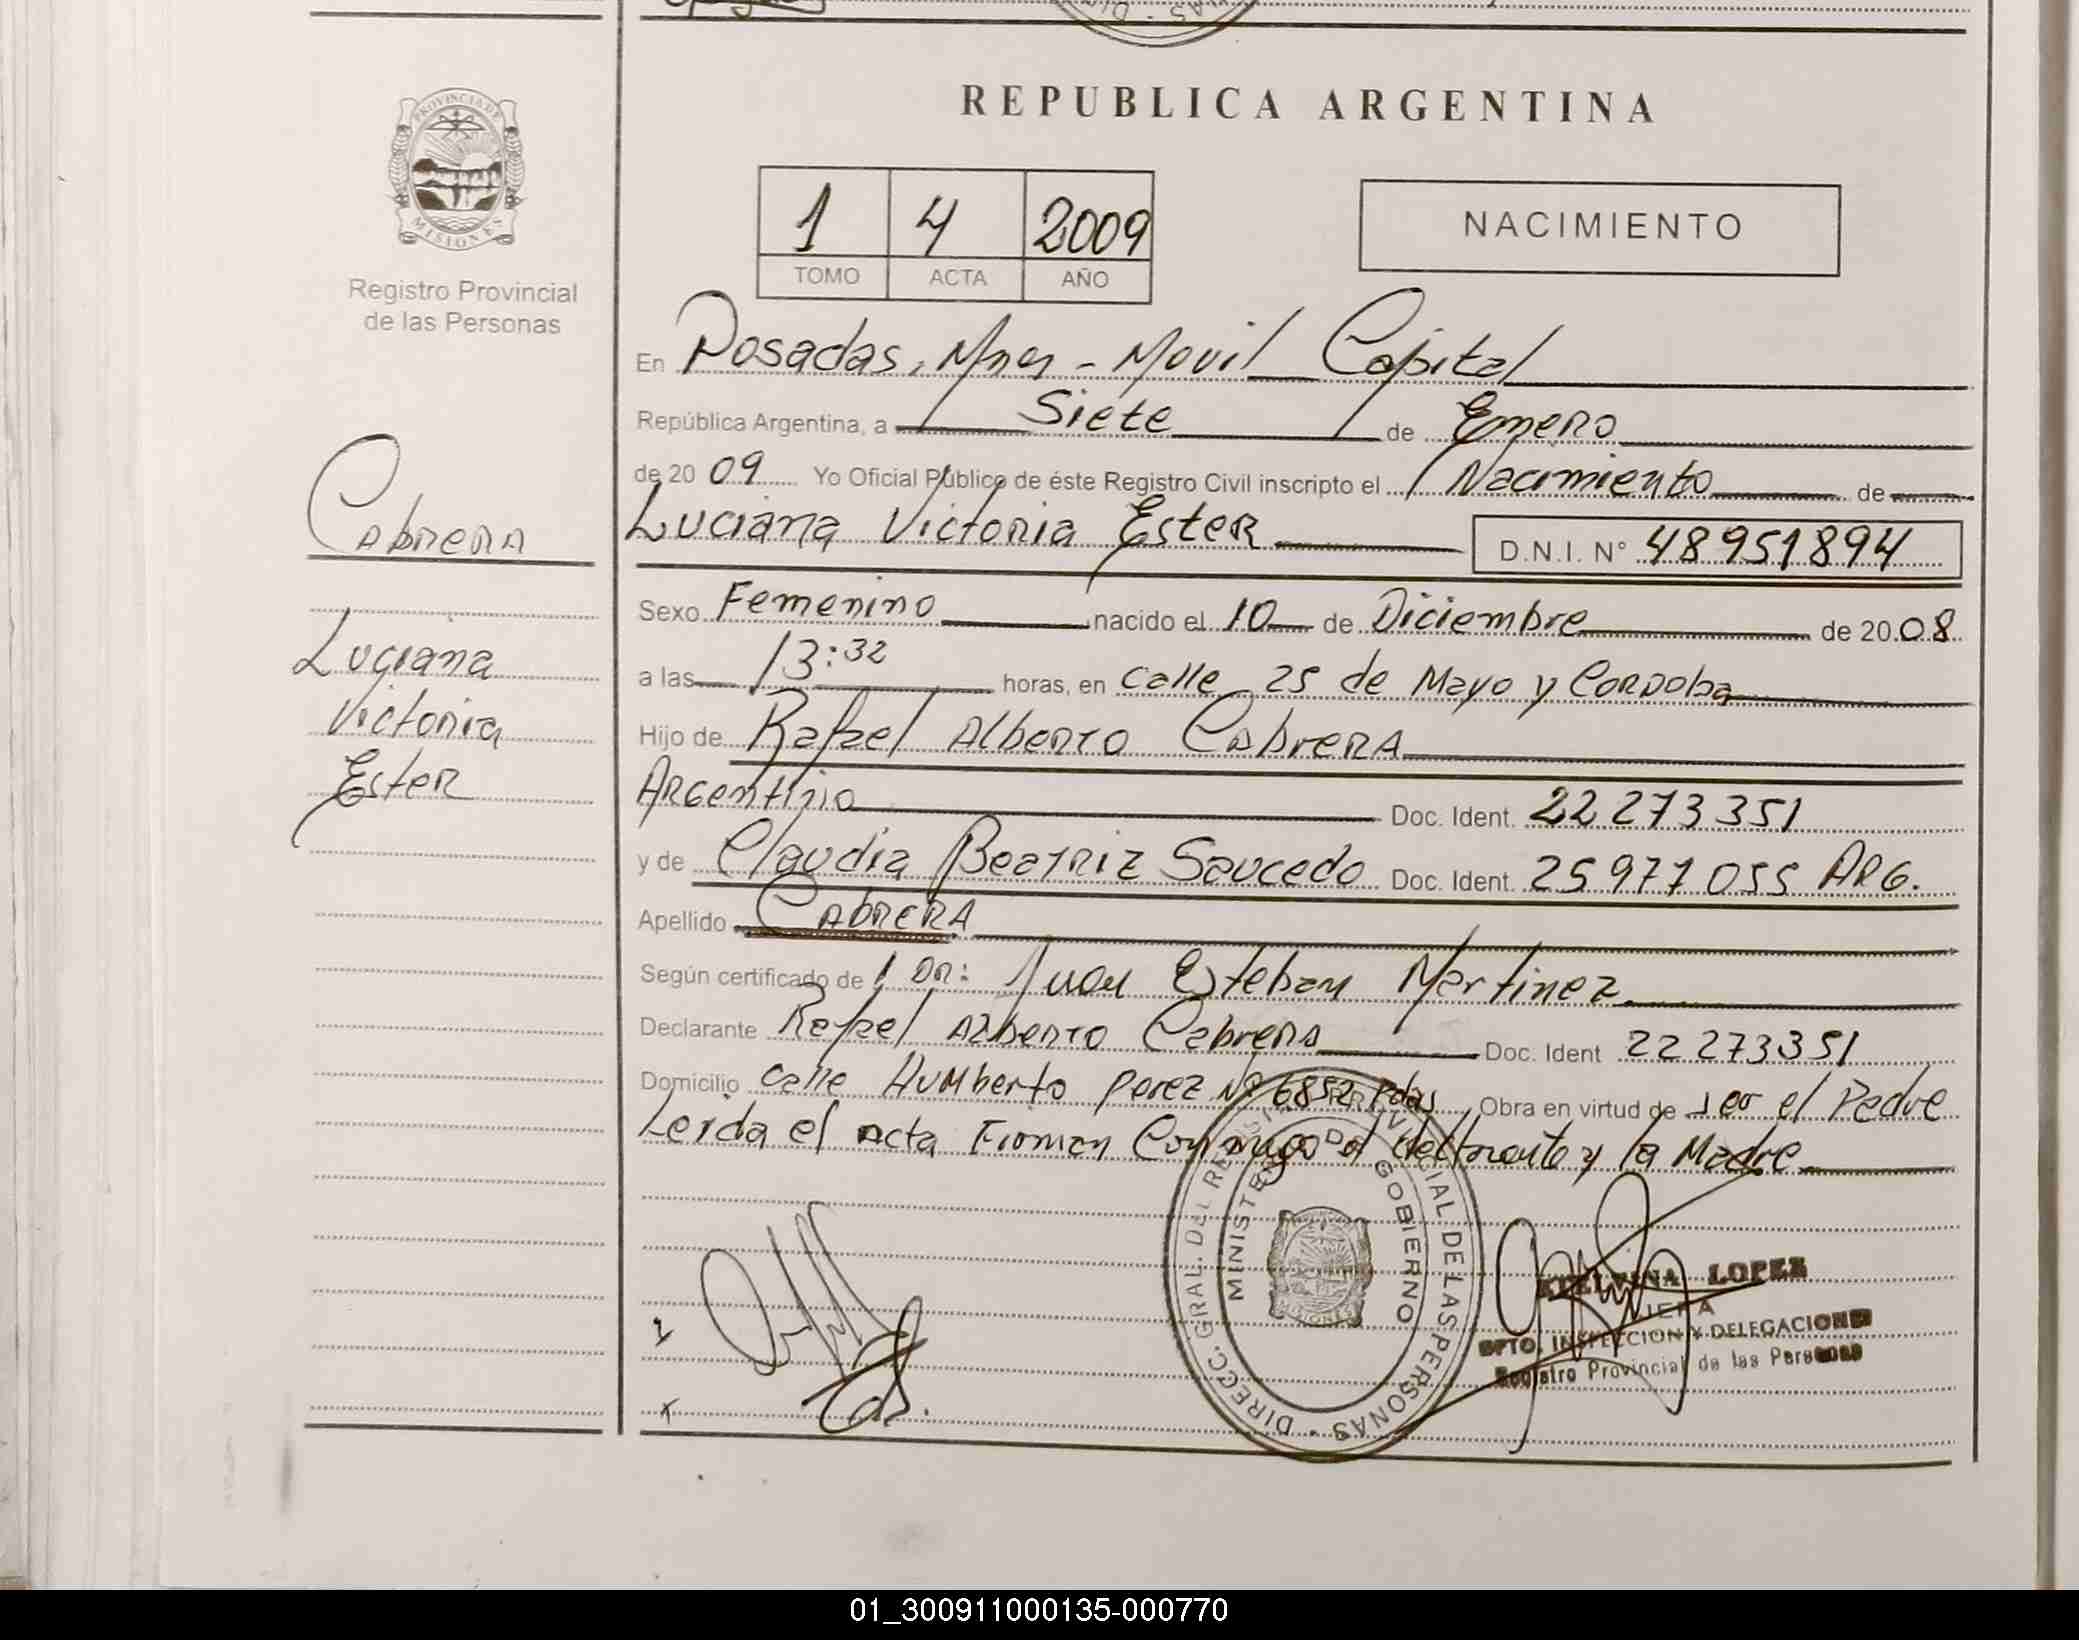 REPUBLICA ARGENTINA
PROVINCIA DE MISIONES
Registro Provincial
de las Personas
1 4 2009
TOMO ACTA AÑO
NACIMIENTO
En Posadas, Mnes - Movil Capital
República Argentina, a Siete de Enero
de 20 09 Yo Oficial Público de éste Registro Civil inscripto el Nacimiento de
Luciana Victoria Ester D.N.I. N° 48951894
Cabrera
Luciana
Victoria
Ester
Sexo Femenino nacido el 10 de Diciembre de 20 08
a las 13:32 horas, en calle 25 de Mayo y Cordoba
Hijo de Rafael Alberto Cabrera
Argentino Doc. Ident. 22 273 351
y de Claudia Beatriz Saucedo Doc. Ident. 25 977 055 ARG.
Apellido Cabrera
Según certificado de Dr: Juan Esteban Martinez
Declarante Rafael Alberto Cabrera Doc. Ident 22 273 351
Domicilio calle Humberto Perez N° 6852 Pdas Obra en virtud de ser el Padre
Leida el acta Firman Conmigo el declarante y la Madre
DIRECC. GRAL. DEL REGISTRO PROVINCIAL DE LAS PERSONAS
MINISTERIO DE GOBIERNO
MISIONES
ETELVINA LOPEZ
JEFA
DPTO. INSPECCION Y DELEGACIONES
Registro Provincial de las Personas
01_300911000135-000770